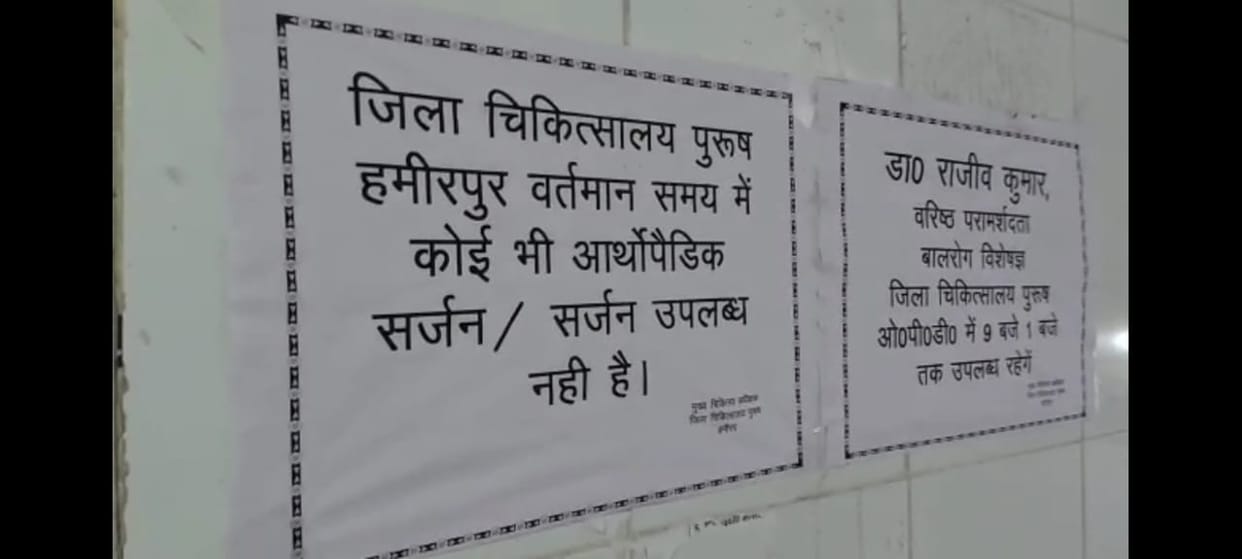 जिला चिकित्सालय पुरूष
हमीरपुर वर्तमान समय में
कोई भी आर्थोपैडिक
सर्जन/ सर्जन उपलब्ध
नही है।
मुख्य चिकित्सा अधीक्षक
जिला चिकित्सालय पुरूष
हमीरपुर
डा0 राजीव कुमार,
वरिष्ठ परामर्शदता
बालरोग विशेषज्ञ
जिला चिकित्सालय पुरूष
ओ0पी0डी0 में 9 बजे 1 बजे
तक उपलब्ध रहेगें